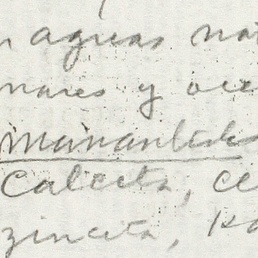 aguas nat
nares y oce
manantiales
Calcita, ce
zincita, ho